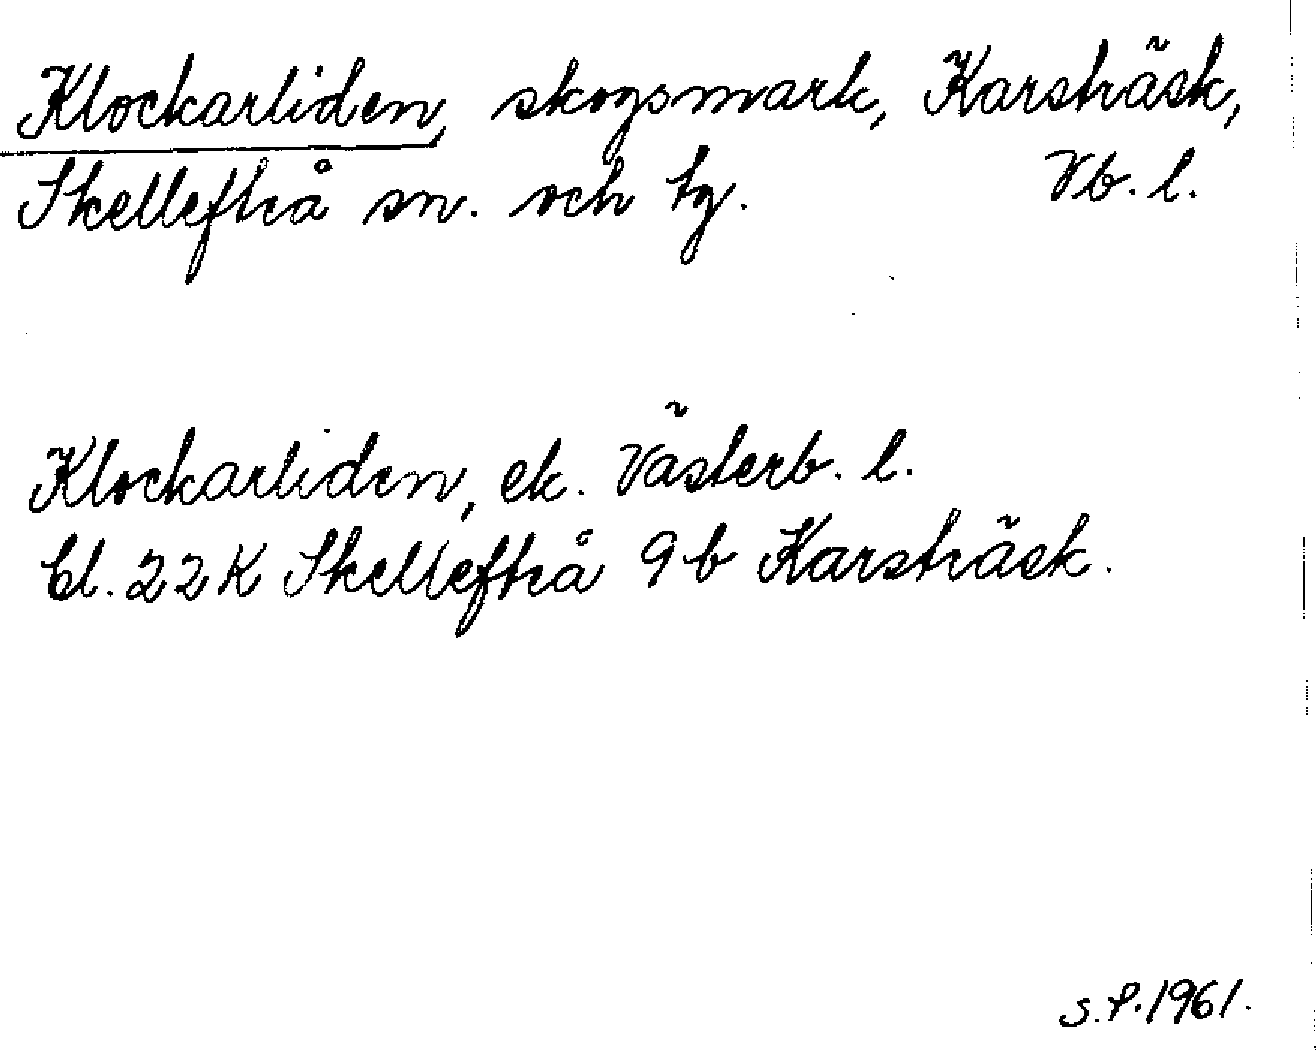 Klockarliden, skogsmark, Karsträsk,
Skellefteå sn. och tg. Vb. l.
Klockarliden, ek. Västerb. l.
bl. 22K Skellefteå 9b Karsträsk.
S.P. 1961.